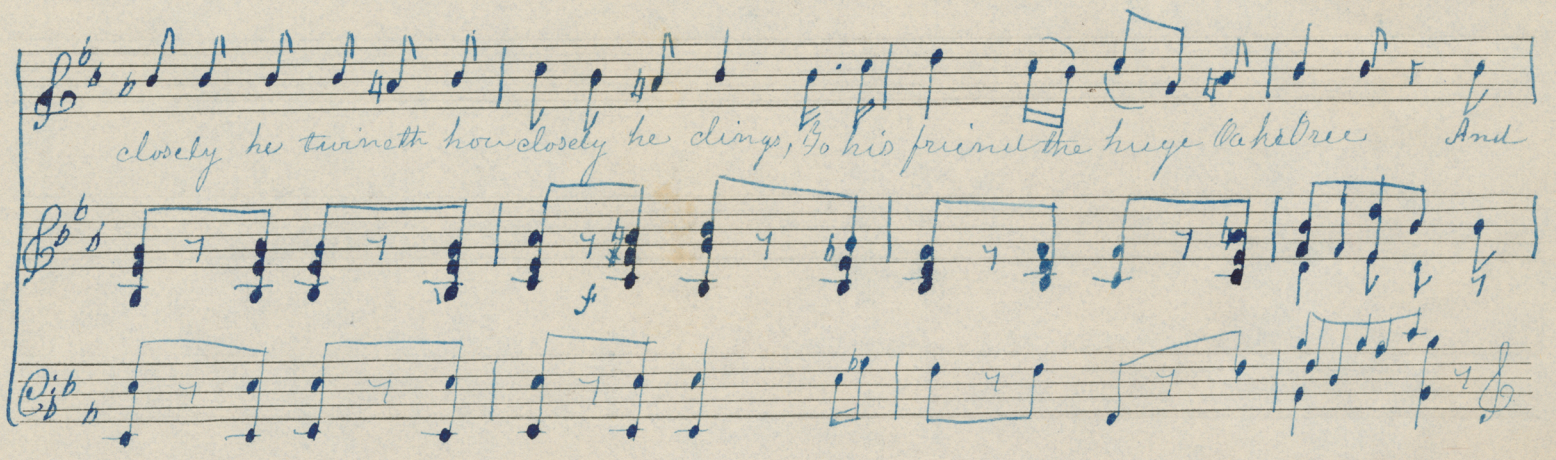 closely he twineth how closely he clings, To his friend the huge Oake Tree And
f